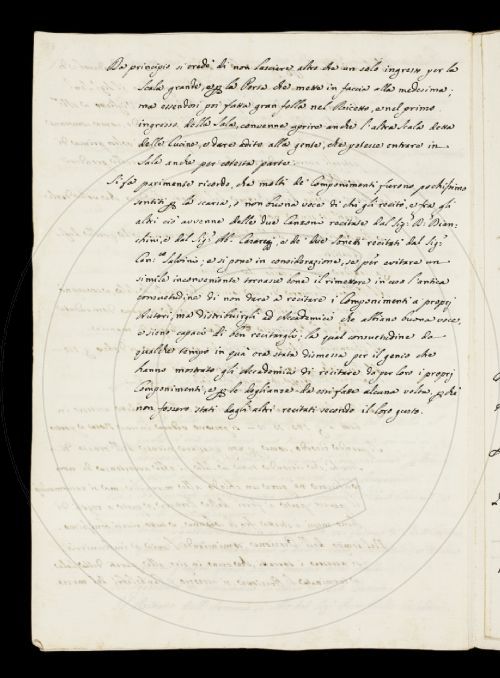 Da principio si credè di non lasciare altro che un solo ingresso per la
Scala grande, e p la Porta che mette in faccia alla medesima;
ma essendosi poi fatta gran folla nel Ricetto, e nel primo
ingresso della Sala, convenne aprire anche l'altra Scala detta
delle Cucine, e dare adito alla gente, che potesse entrare in
Sala anche per cotesta parte.
Si fa parimente ricordo, che molti de' Componimenti furono pochissimo
sentiti p la scarsa, e non buona voce di chi gli recitò, e tra gli
altri ciò avvenne delle due Canzoni recitate dal Sig.r D.r Bian-
chini, e dal Sig.r Ab. Casaregi, e de' due Sonetti recitati dal Sig.r
Can.co Salvini; e si pone in considerazione, se per evitare un
simile inconveniente tornasse bene il rimettere in uso l'antica
consuetudine di non dare a recitare i Componimenti a proprj
Autori, ma distribuirgli ad Accademici che abbiano buona voce,
e sieno capaci di ben recitargli; la qual consuetudine da
qualche tempo in quà era stata dismessa per il genio che
hanno mostrato gli Accademici di recitare da per loro i proprj
Componimenti, e p le doglianze da essi fatte alcuna volta, p chè
non fossero stati dagli altri recitati secondo il loro gusto.